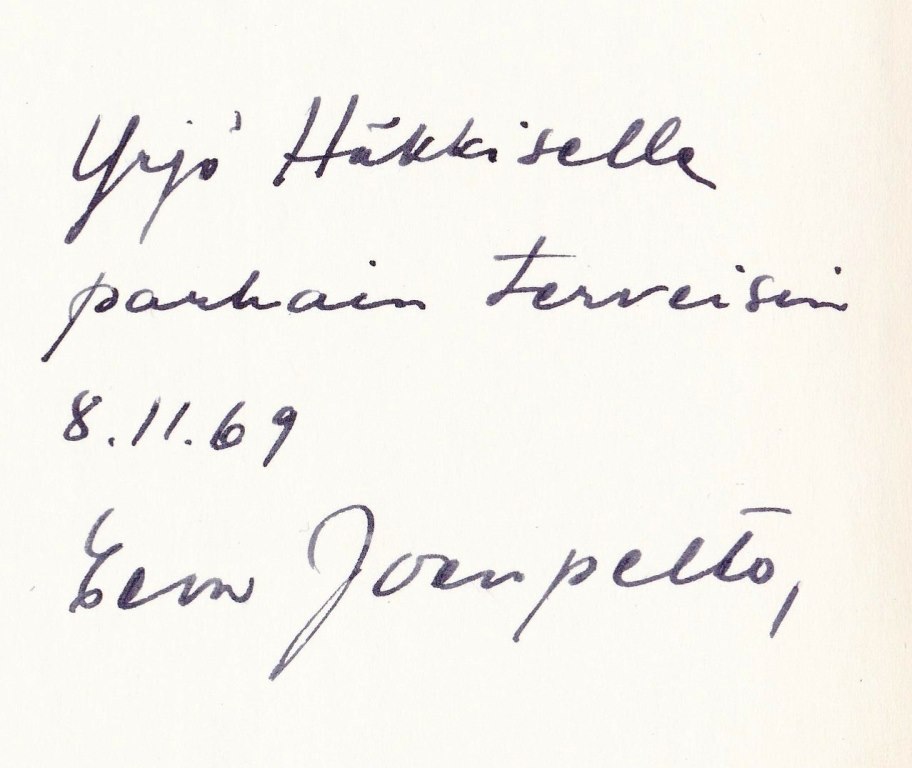 Yrjö Häkkiselle
parhain terveisin
8.11.69
Eeva Joenpelto,